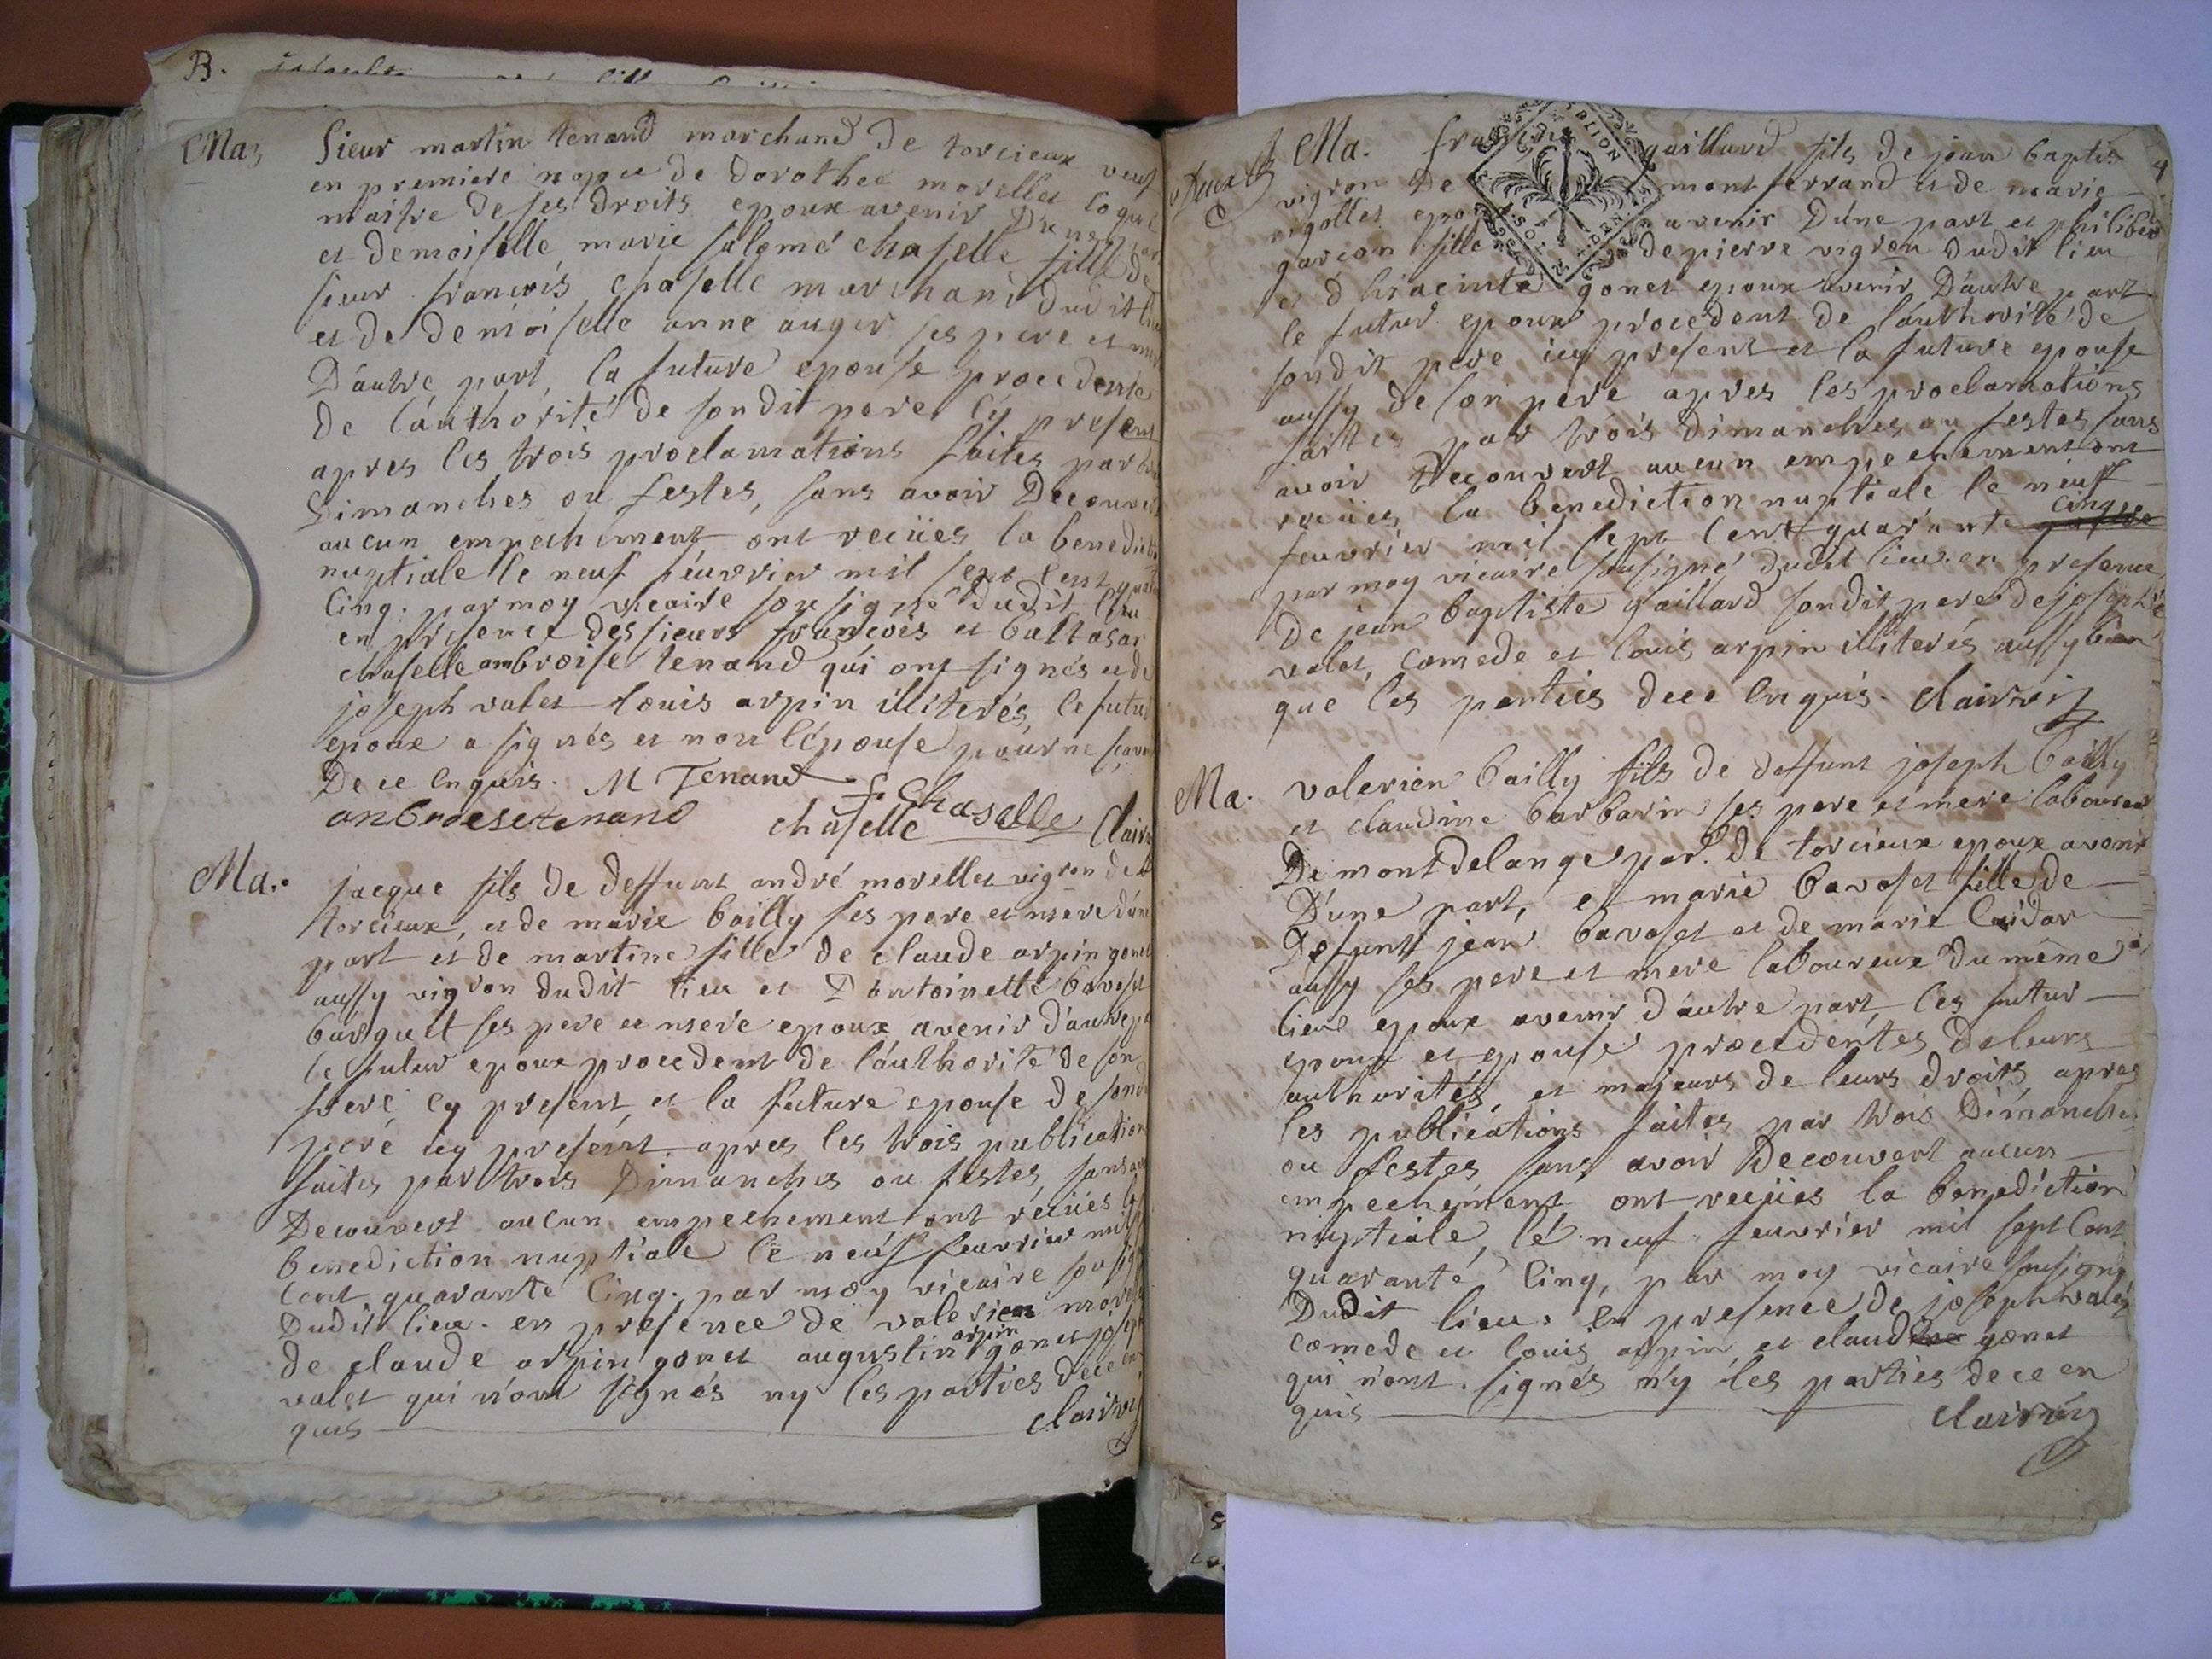 B.
Ma. Sieur martin tenand marchand de torcieux veuf
en premiere nopce de dorothee morellet
maitre de ses droits epoux avenir D'une
et demoiselle marie salomé chaselle fille de
sieur francois chaselle marchand dudit lieu
et de demoiselle anne auger ses pere et
D'autre part, la future epouse procedente
de l'authorité de sondit pere cy present
apres les trois proclamations faites par
Dimanches ou festes, sans avoir Decouvert
aucun empechement ont reciies la
nuptiale le neuf feuvrier mil sept cent
cinq. par moy vicaire sousigné dudit lieu
en presence des sieurs francois et baltasar
chaselle ambroise tenand qui ont signés
joseph valet louis arpin illiterés, le futur
epoux a signés et non l'épouse pour ne
De ce enquis. M Tenand
f. Chaselle
anbroesetenand chaselle
Ma. jacque fils de deffunt andré morellet vigron de
torcieux, et de marie bailly ses pere et mere d'une
part et de martine fille de claude arpin gonet
aussy vigron dudit lieu et D'antoinette bavoset
ses pere et mere epoux avenir d'autre
le futur epoux procedent de l'authorité de son
frere cy present et la future epouse de
pere icy present apres les trois publications
faites par trois Dimanches ou festes, sans
Decouvert aucun empechement ont reciies
benediction nuptiale le neuf feuvrier mil
cent quarante cinq. par moy vicaire
Dudit lieu. en presence de valerien
de claude arpin gonet augustin arpin gonet
valet qui n'ont signés ny les parties de ce
quis clairvy
4
Ma. gaillard fils de jean baptis
vigron de montferrand et de marie
rigollet avenir D'une part et philiber
garcon fille de pierre vigron dudit lieu
et d'hiacinte gonet epoux avenir D'autre part
le futur epoux procedent de l'authorité de
sondit pere icy present et la future epouse
aussy de son pere apres les proclamations
faittes par trois dimanches ou festes sans
avoir Decouvert aucun empechement ont
reciies la benediction nuptiale le neuf
feuvrier mil sept cent quarante cinq
par moy vicaire sousigné dudit lieu. en presence
De jean baptiste gaillard sondit pere de joseph
valet, comede et louis arpin illiterés aussy bien
que les parties de ce enquis. clairvy
Ma. valerien bailly fils de deffunt joseph bailly
et claudine barbarin ses pere et mere laboureur
De montdelange par. de torcieux epoux avenir
D'une part, et marie bavoset fille de
Defunt jean bavoset et de marie
aussy ses pere et mere laboureur du même
lieu epoux avenir d'autre part, les futur
epoux et epouse procedentes de leurs
authorités, et majeurs de leurs droits, apres
les publications faites par trois Dimanches
ou festes sans avoir Decouvert aucun
empechement ont reciies la benediction
nuptiale, le neuf feuvrier mil sept cent
quarante cinq, par moy vicaire sousigné
Dudit lieu. en presence de joseph valet
comede et louis arpin et claude gonet
qui n'ont signés n'y les parties de ce en
quis clairvy